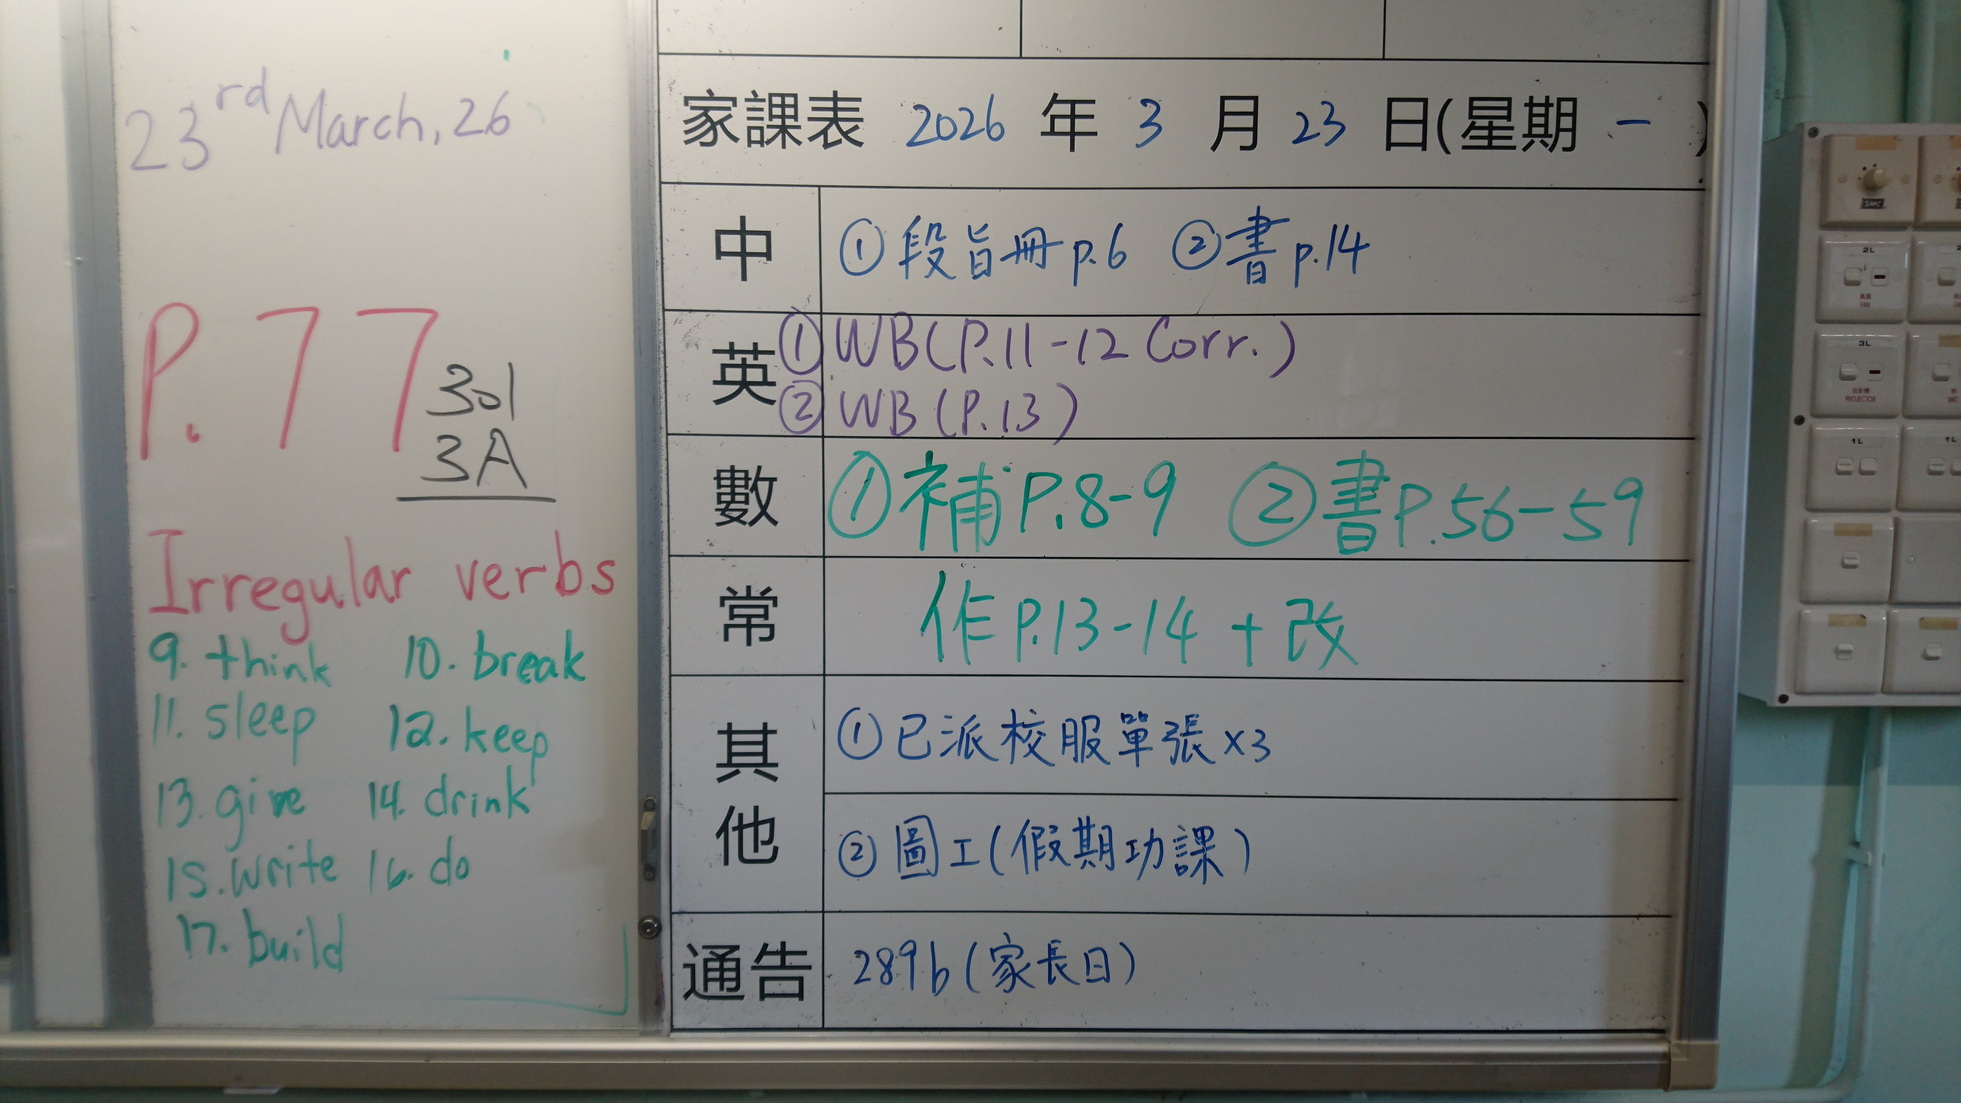 23rd March, 26
P. 77
301
3A
Irregular verbs
9. think 10. break
11. sleep 12. keep
13. give 14. drink
15. write 16. do
17. build
家課表 2026 年 3 月 23 日(星期 一 )
中 ①段旨冊 p.6 ②書 p.14
英 ①WB(P.11-12 Corr.)
②WB(P.13)
數 ①補P.8-9 ②書P.56-59
常 作P.13-14 + 改
其他 ①已派校服單張x3
②圖工(假期功課)
通告 289b(家長日)
2L
FAN
3L
PROJECTOR
1L
1L